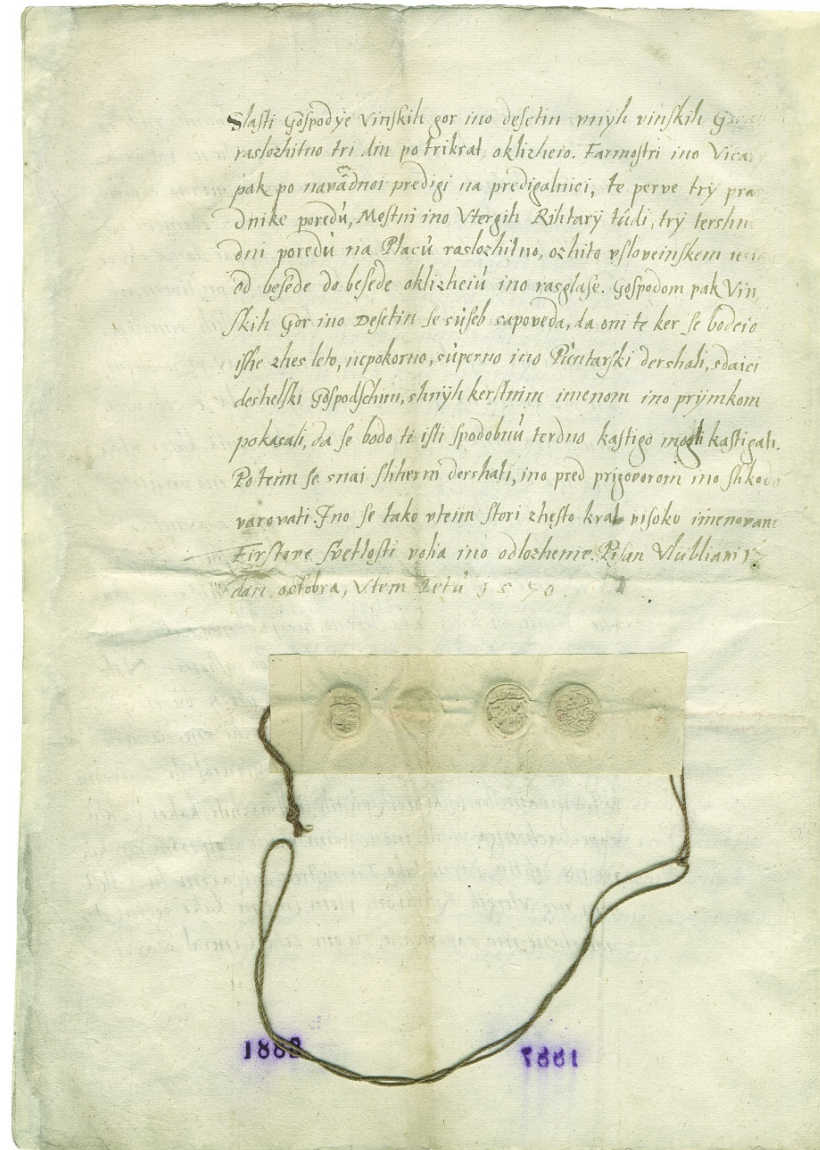 Slasti Gospodye Vinskih gor ino desetin vniyh vinskih
raslozhitno tri dni po trikrat oklizheio. Farmostri ino
pak po navadnoi predigi na predigalnici, te perve try
dnike poredù, Mestni ino Vtergih Rihtary tùdi, try
dni poredù na Placù raslozhitno, ozhito vsloveinskem
od besede do besede oklizheiù ino rasglase. Gospodom pak Vin
skih Gor ino Desetin se sùseb sapoveda, da oni te ker se bodeio
ishe zhes leto, nepokorno, sùperno ino Pùntarski dershali, sdaici
deshelski Gospodschini, shniyh kerstnim imenom ino priymkom
pokasali, da se bodo ti isti spodobnù terdno kastigo mogli kastigati.
Po teim se snai sliherni dershati, ino pred prigovorom ino
varovati Ino se tako vteim stori zhesto krat visoku
Firstove Svetlosti volia ino odlozheine. Pisan Vlùbliani
dan octobra, Vtem Letù 1570.
1882
1887